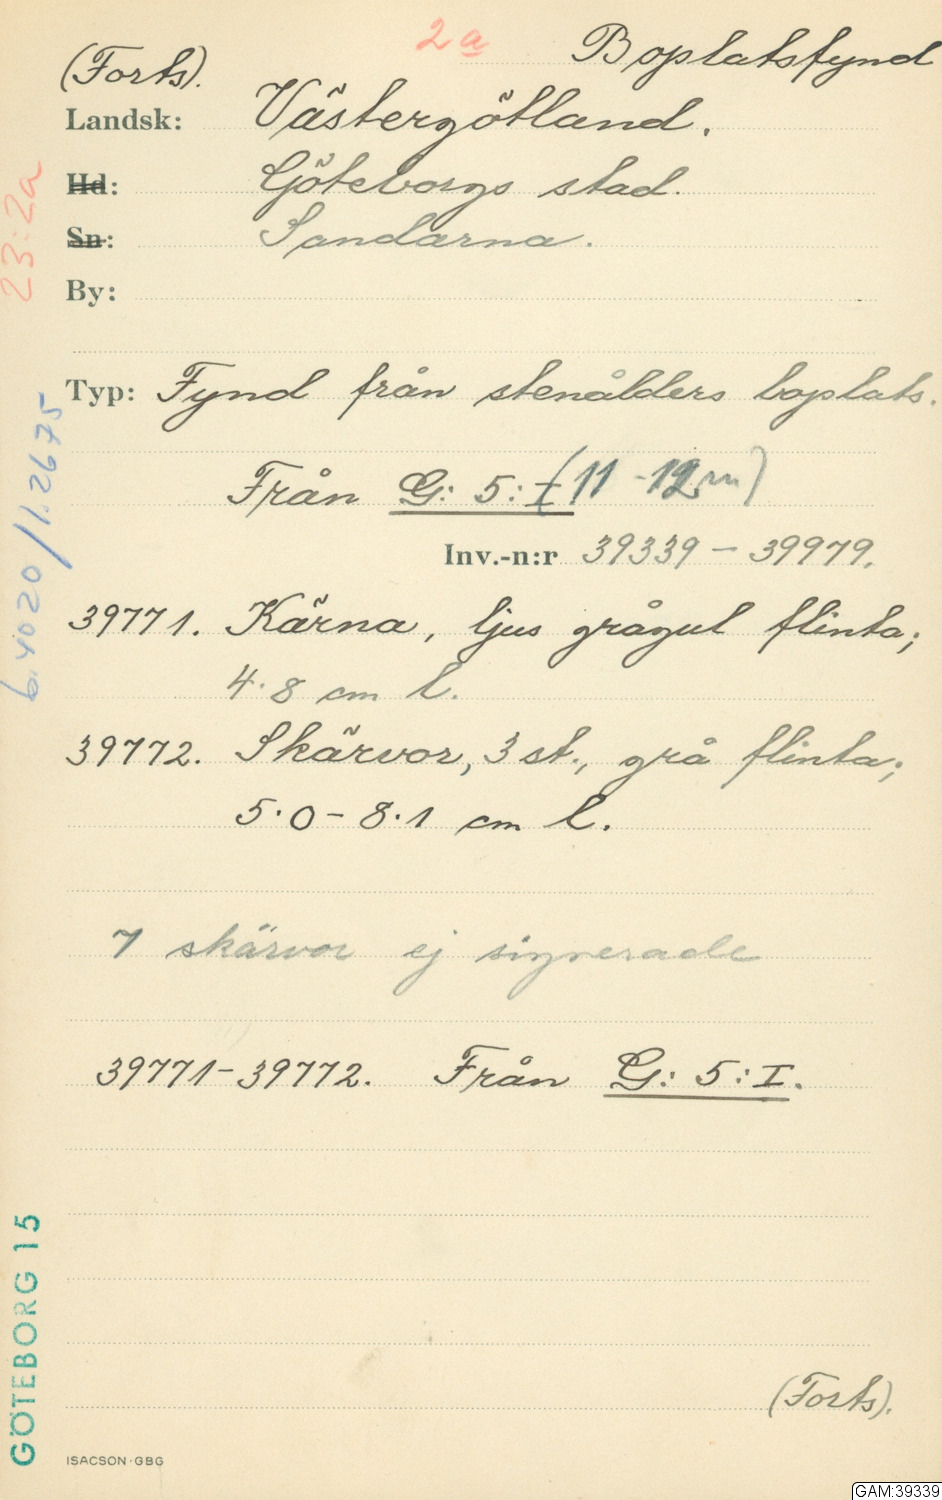 2a Boplatsfynd
(Forts).
Landsk: Västergötland.
Hd: Göteborgs stad.
Sn: Sandarna.
By:
Typ: Fynd från stenålders boplats.
Från G: 5: I (11-12m)
Inv.-n:r 39339 - 39979.
39771. Kärna, ljus grågul flinta;
4.8 cm l.
39772. Skärvor, 3 st., grå flinta;
5.0 - 8.1 cm l.
7 skärvor ej signerade
39771-39772. Från G: 5: I.
(Forts).
23:2a
6.4020/1.2675
GÖTEBORG 15
ISACSON·GBG
GAM:39339